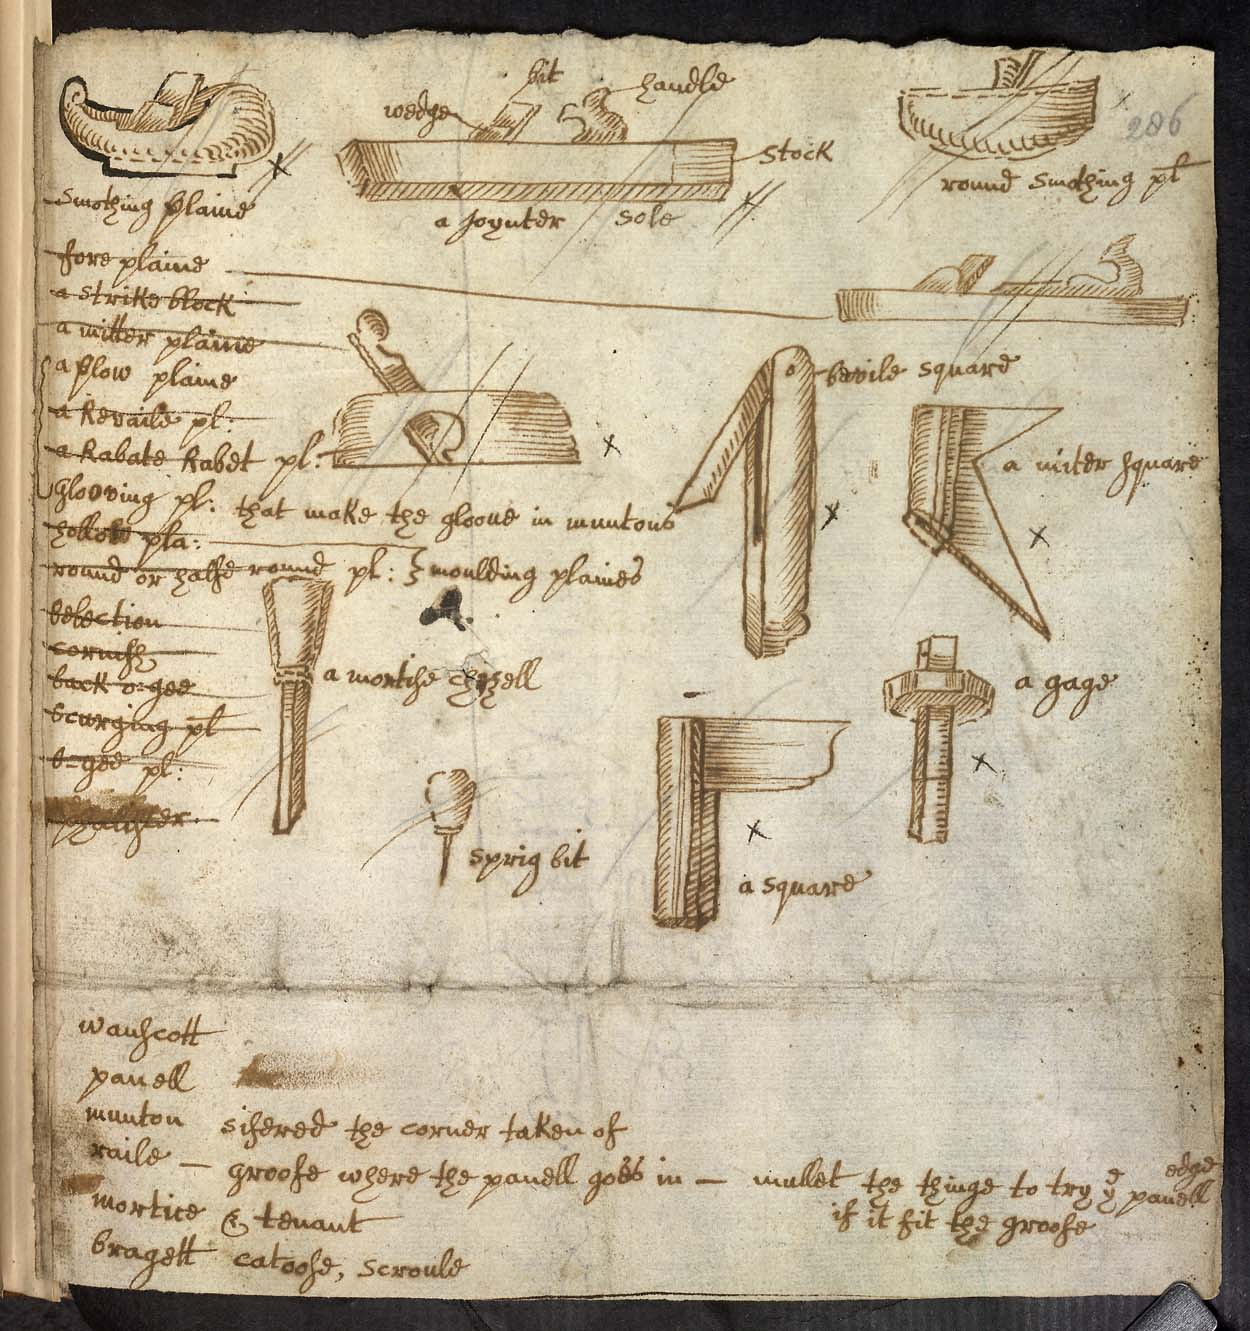 bit
handle
wedge
stock
286
smothing plaine
a Joynter
sole
round smothing pl
fore plaine
a strike block
a mitter plaine
a plow plaine
a Revaile pl:
a Rabate Rabet pl:
glooving pl: that make the gloove in muntons
hollow pla:
round or halfe round pl: moulding plaines
bevile square
a miter square
belection
cornish
back o=gee
scurging pl
o=gee pl:
a mortise chissell
a gage
sprig bit
a square
wanscott
panell
munton sifered the corner taken of
raile — groofe where the panell goes in — mullet the thinge to try ye edge panell
if it fit the groofe
mortice & tenant
bragett catoose, scroule